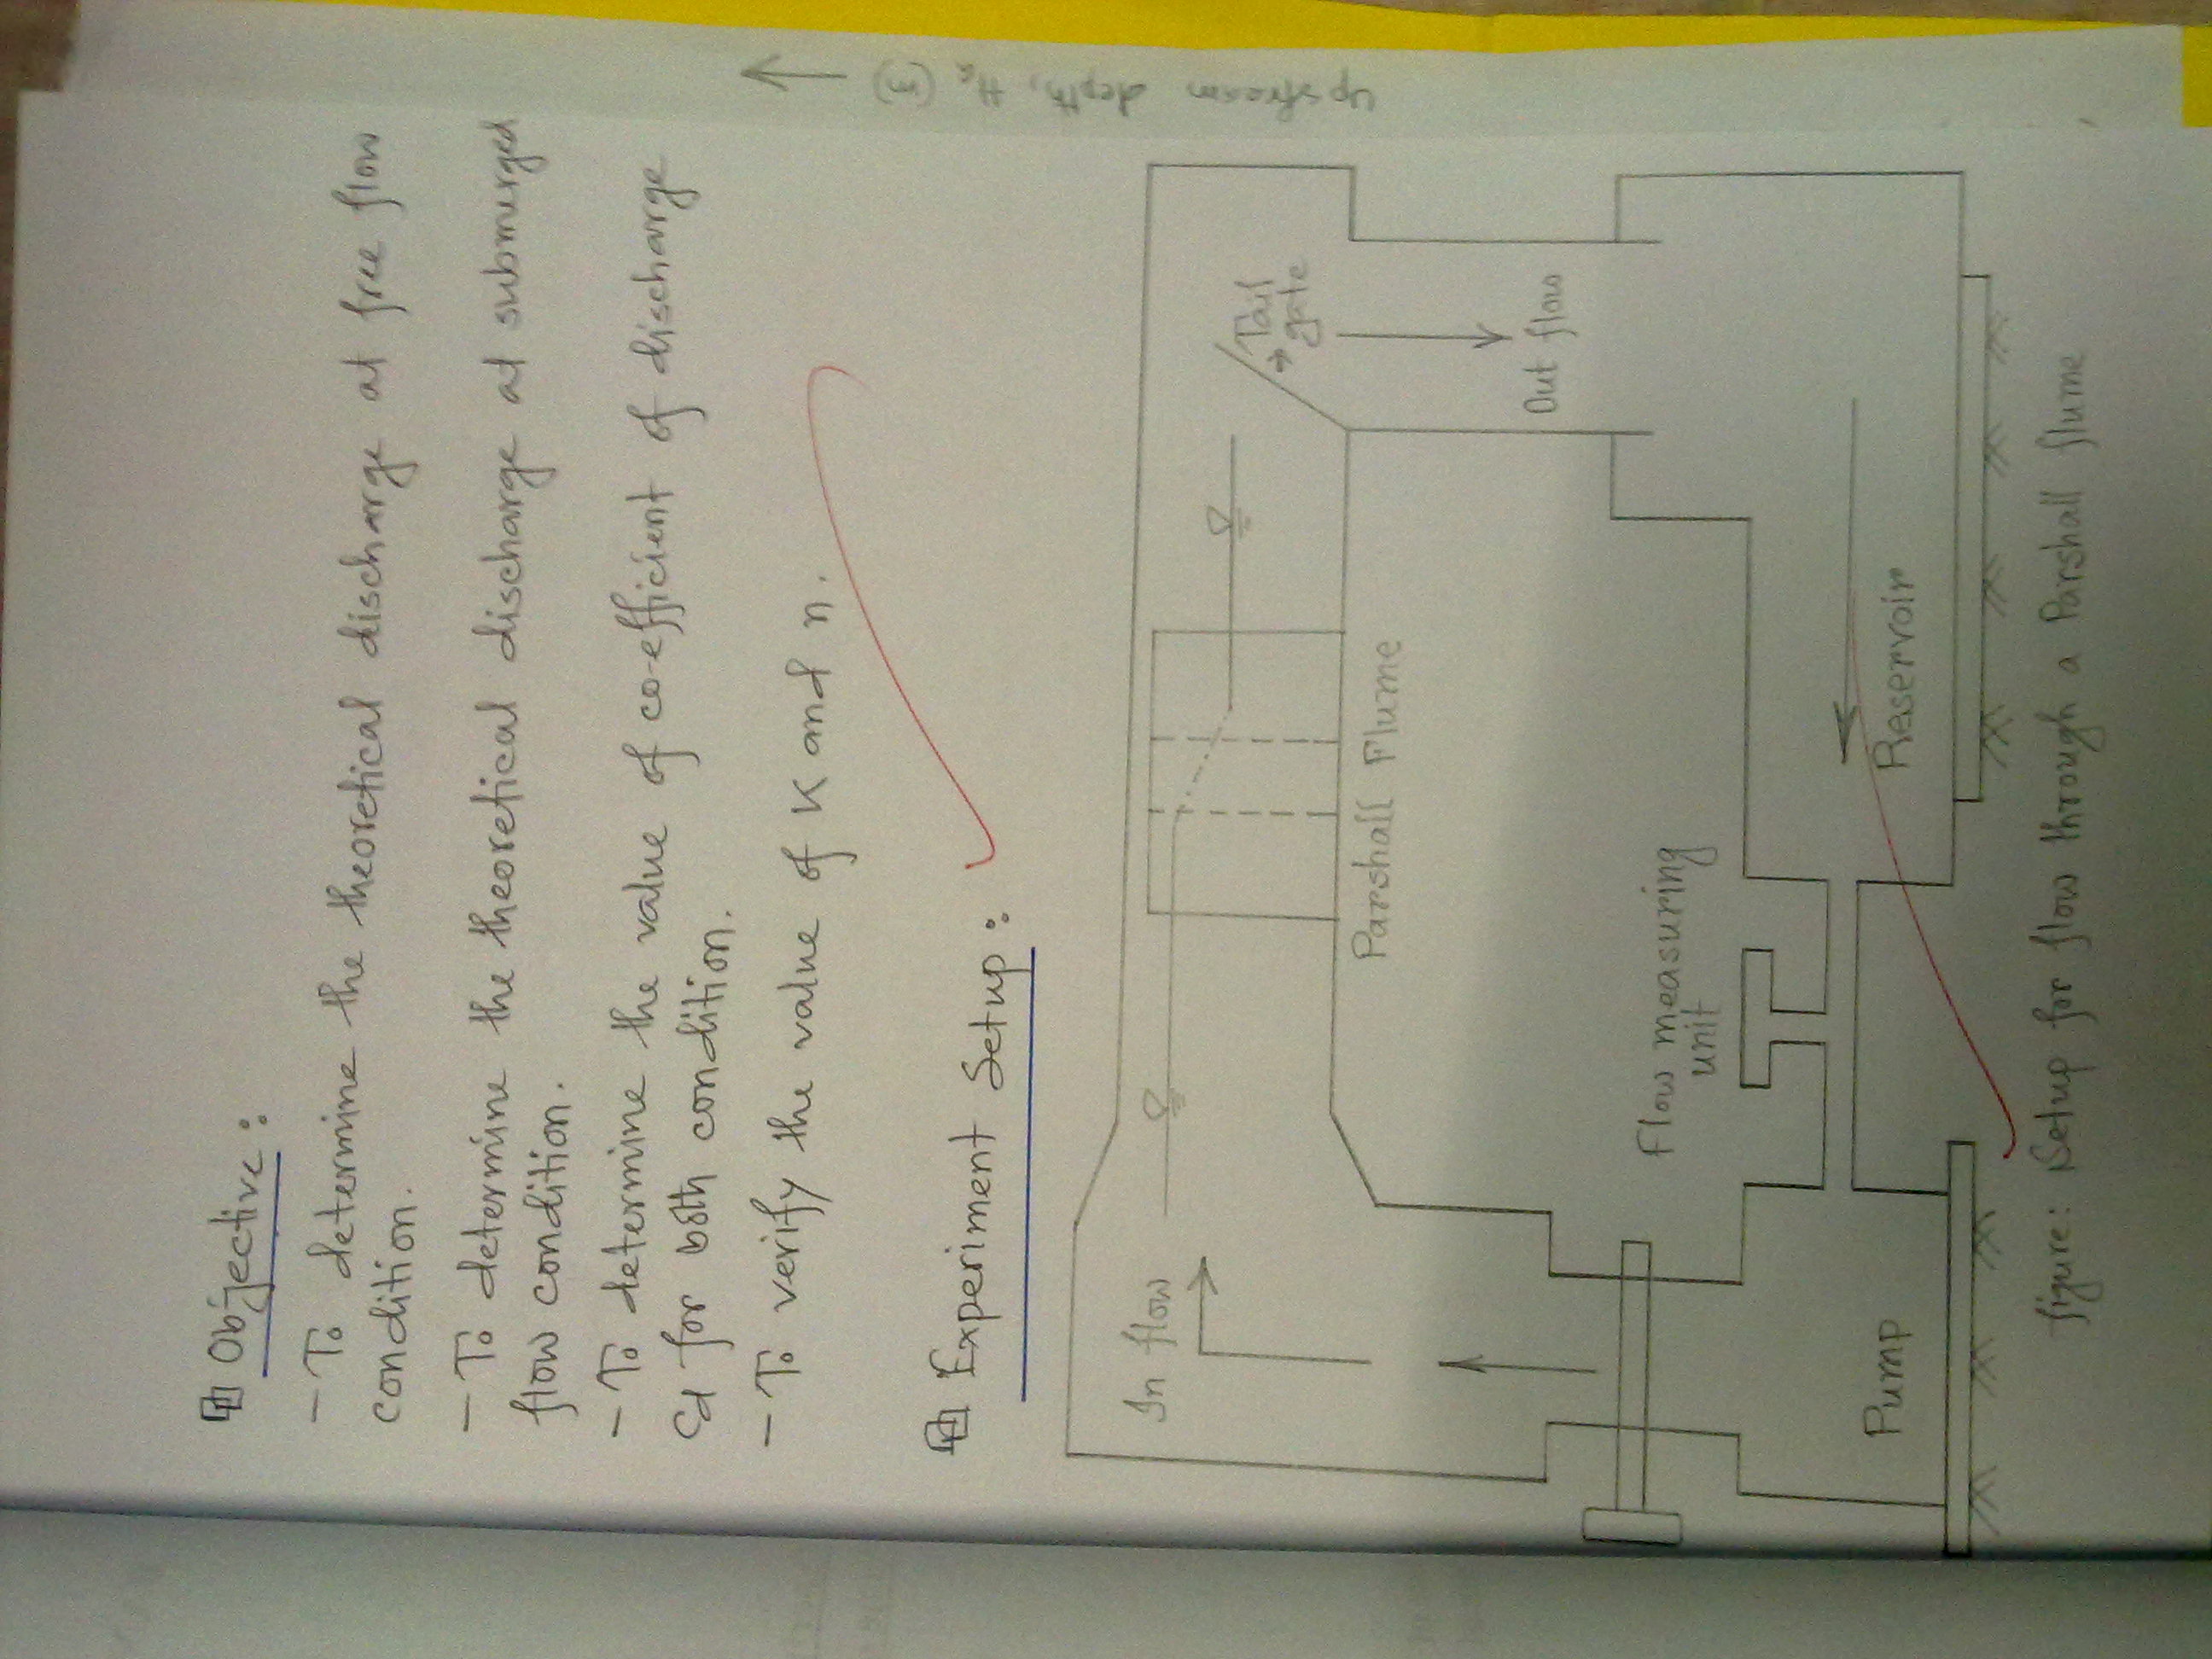 Objective:
- To determine the theoretical discharge at free flow
condition.
- To determine the theoretical discharge at submerged
flow condition.
- To determine the value of co-efficient of discharge
Cd for both condition.
- To verify the value of K and n.
Experiment Setup:
In flow
Tail
gate
Out flow
Parshall Flume
Flow measuring
unit
Pump
Reservoir
figure: Setup for flow through a Parshall flume
Upstream depth, Ha (m)